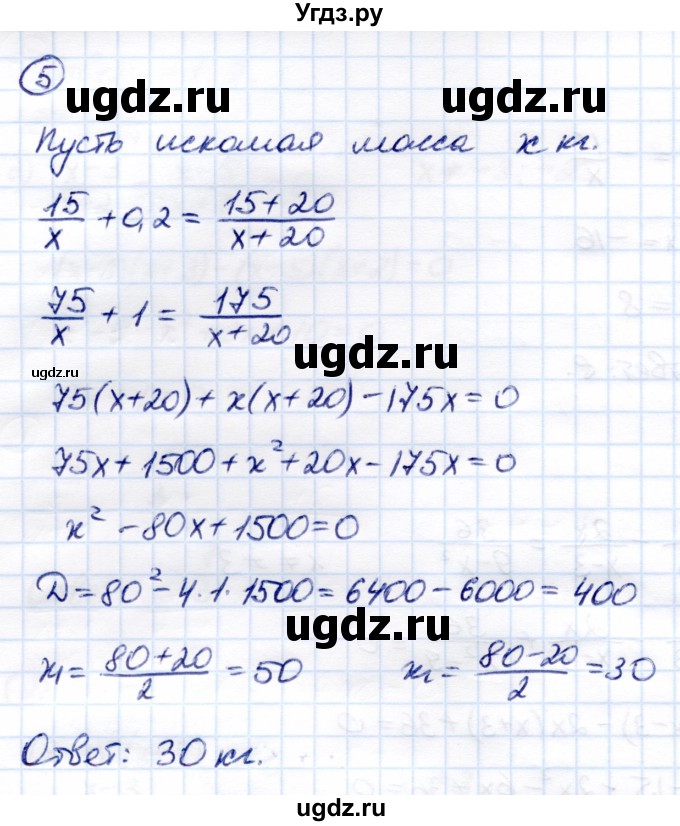 Угдз.ру
5
ugdz.ru ugdz.ru
Пусть искомая масса x кг.
15/x + 0,2 = (15+20)/(x+20)
75/x + 1 = 175/(x+20)
ugdz.ru
ugdz.ru
75(x+20) + x(x+20) - 175x = 0
75x + 1500 + x² + 20x - 175x = 0
x² - 80x + 1500 = 0
D = 80² - 4·1·1500 = 6400 - 6000 = 400
ugdz.ru
x₁ = (80+20)/2 = 50 x₂ = (80-20)/2 = 30
Ответ: 30 кг.
ugdz.ru
ugdz.ru